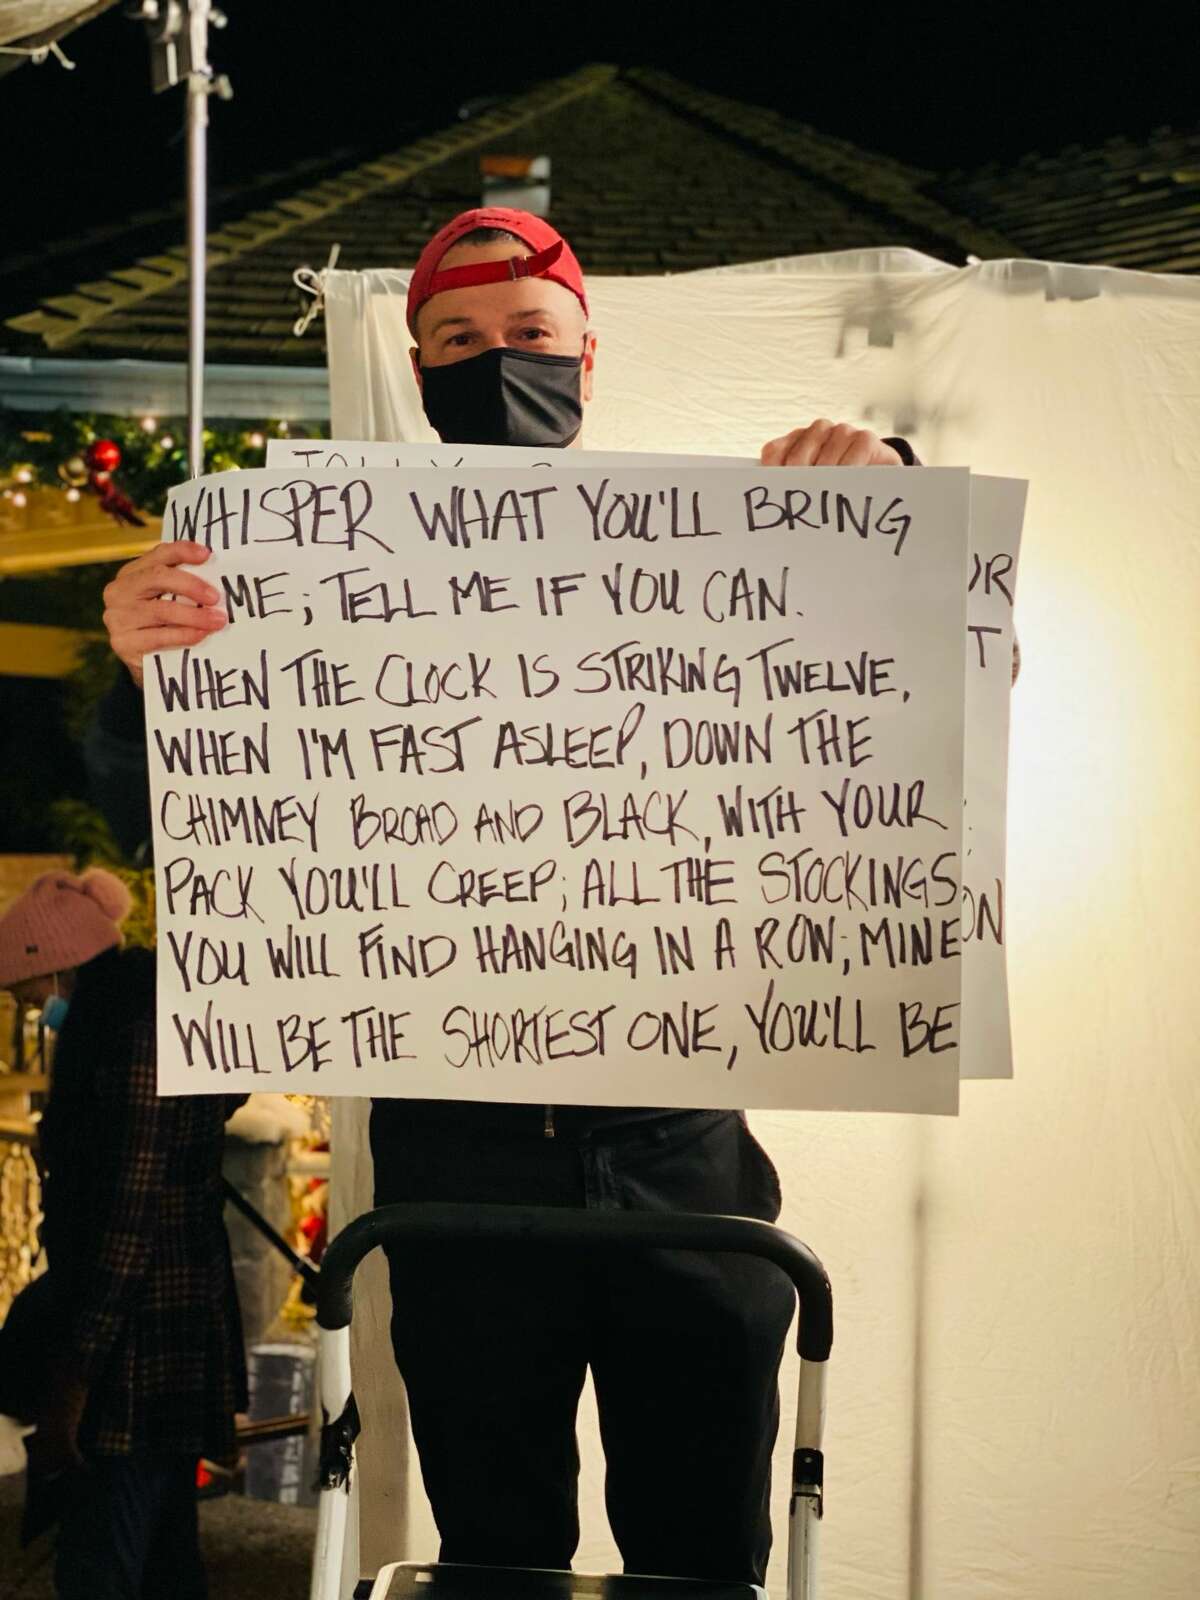 JOLLY
WHISPER WHAT YOU'LL BRING
ME; TELL ME IF YOU CAN.
WHEN THE CLOCK IS STRIKING TWELVE,
WHEN I'M FAST ASLEEP, DOWN THE
CHIMNEY BROAD AND BLACK, WITH YOUR
PACK YOU'LL CREEP; ALL THE STOCKINGS
YOU WILL FIND HANGING IN A ROW; MINE
WILL BE THE SHORTEST ONE, YOU'LL BE